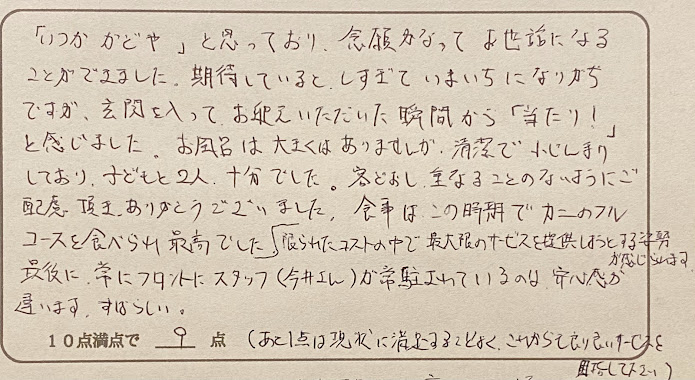 「いつか かどや」と思っており、念願かなって お世話になる
ことができました。期待していると、しすぎて いまいちになりがち
ですが、玄関を入って、お迎えいただいた瞬間から「当たり！」
と感じました。お風呂は大きくはありませんが、清潔で小じんまり
しており、子どもと2人、十分でした。客どおし、重なることのないようにご
配慮頂き、ありがとうございました。食事は、この時期でカニのフル
コースを食べられ最高でした 限られたコストの中で最大限のサービスを提供しようとする姿勢
が感じられます。
最後に、常にフロントにスタッフ(今井さん)が常駐されているのは、安心感が
違います。すばらしい。
10点満点で 9 点 (あと1点は現状に満足することなく、これからも より良いサービスを
目指して下さい)